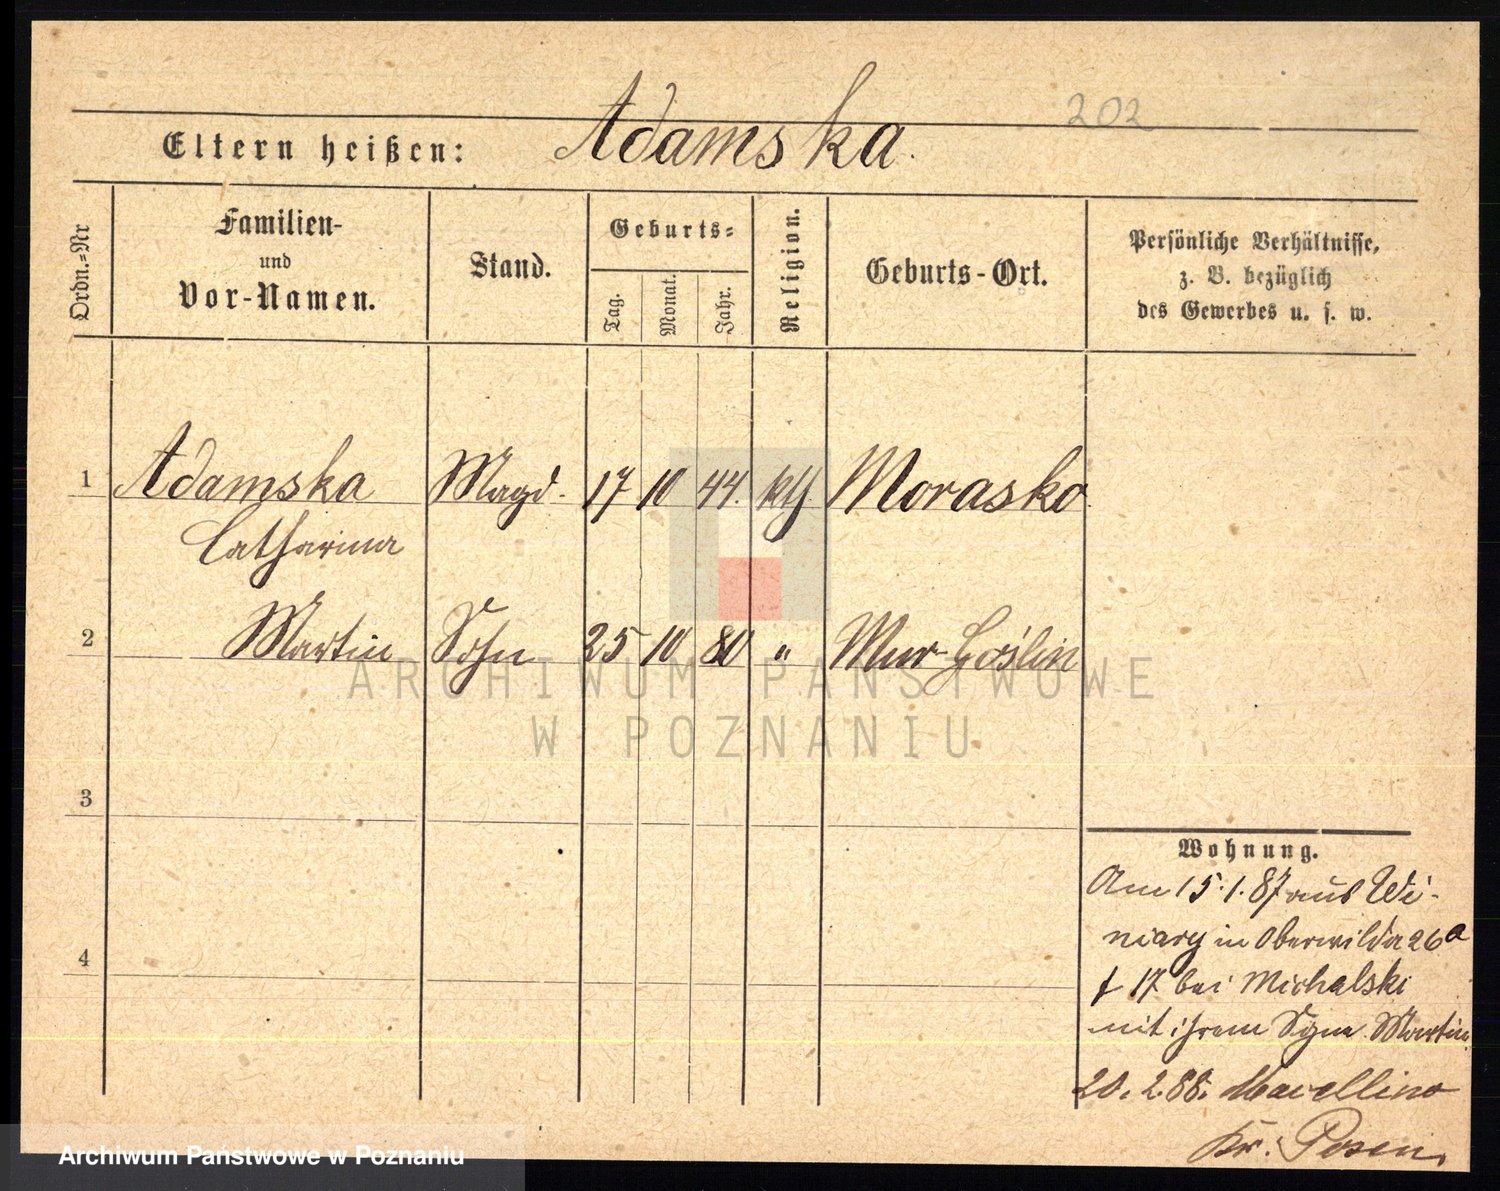 202
Eltern heißen: Adamska.
Ordn.=Nr
Familien-
und
Vor-Namen.
Stand.
Geburts=
Tag.
Monat.
Jahr.
Religion.
Geburts-Ort.
Persönliche Verhältnisse,
z. B. bezüglich
des Gewerbes u. s. w.
1 Adamska Magd. 17 10 44. kth. Morasko
Catharina
2 Martin Sohn 25 10 80 " Mur-Goślin
ARCHIWUM PAŃSTWOWE
W POZNANIU
3
4
Wohnung.
Am 15.1.87 aus Wi-
niary in Oberwilda 26a
17 bei Michalski
mit ihrem Sohne Martin
20.2.88. Marcellino
Kr. Posen.
Archiwum Państwowe w Poznaniu